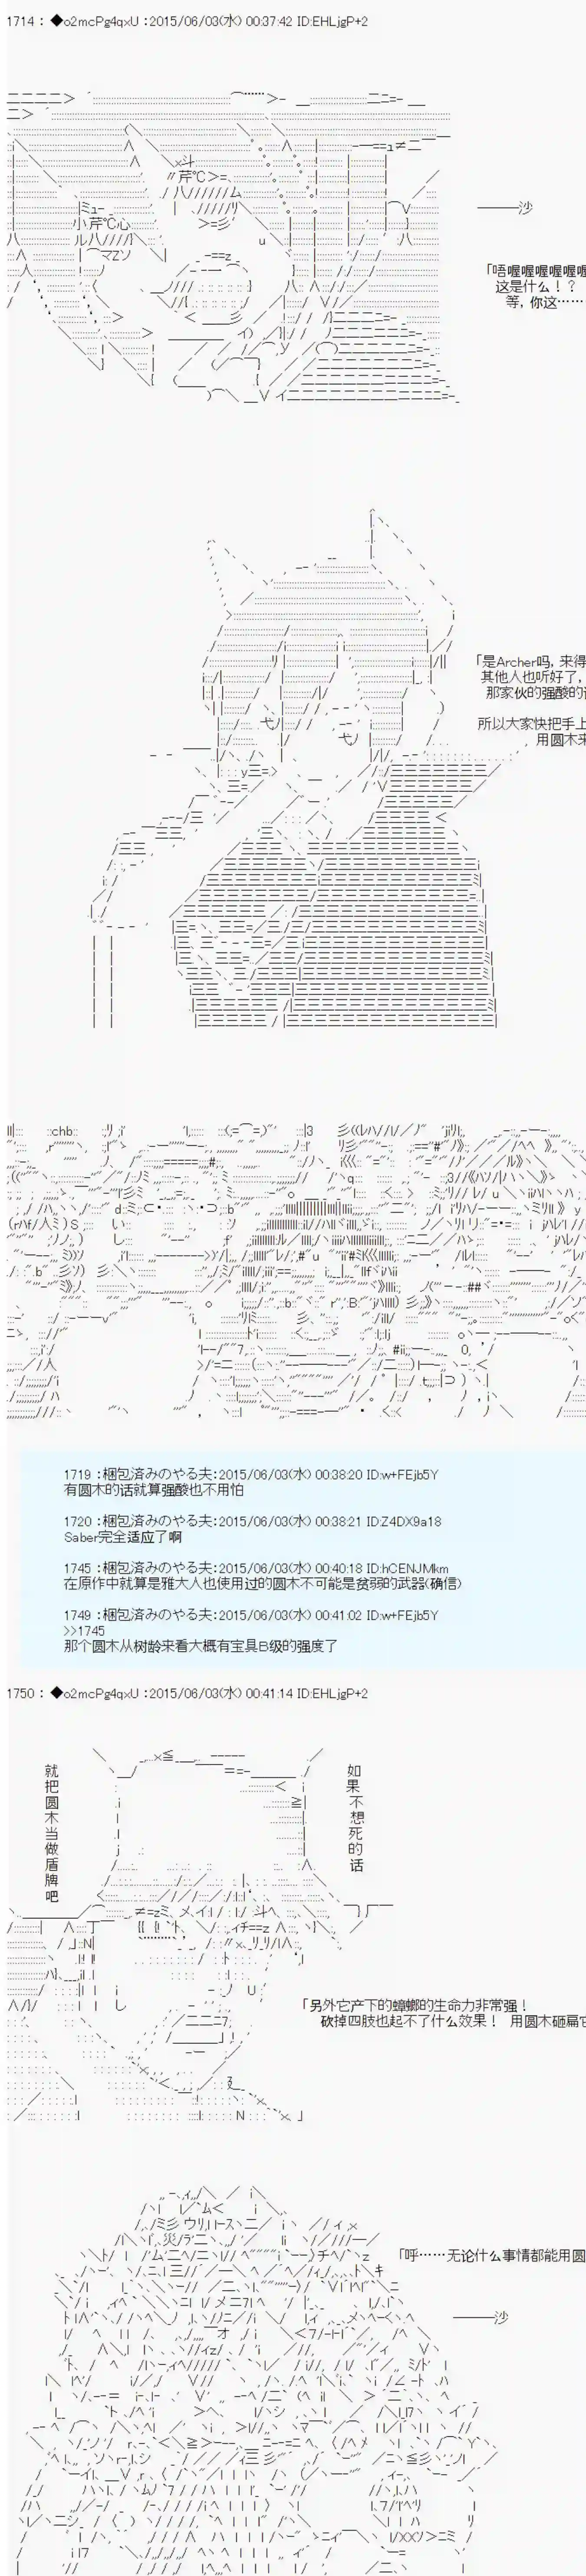 1714 : ◆o2mcPg4qxU : 2015/06/03(水) 00:37:42 ID:EHLjgP+2
───沙
「唔喔喔喔喔喔喔
这是什么！？
等，你这……
「是Archer吗，来得
其他人也听好了，
那家伙的强酸的
所以大家快把手上
，用圆木来
1719 :梱包済みのやる夫：2015/06/03(水) 00:38:20 ID:w+FEjb5Y
有圆木的话就算强酸也不用怕
1720 :梱包済みのやる夫：2015/06/03(水) 00:38:21 ID:Z4DX9a18
Saber完全适应了啊
1745 :梱包済みのやる夫：2015/06/03(水) 00:40:18 ID:hCENJMkm
在原作中就算是雅大人也使用过的圆木不可能是贫弱的武器(确信)
1749 :梱包済みのやる夫：2015/06/03(水) 00:41:02 ID:w+FEjb5Y
>>1745
那个圆木从树龄来看大概有宝具B级的强度了
1750 : ◆o2mcPg4qxU : 2015/06/03(水) 00:41:14 ID:EHLjgP+2
如果不想死的话
就把圆木当做盾牌吧
「另外它产下的蟑螂的生命力非常强！
砍掉四肢也起不了什么效果！ 用圆木砸扁它
「呼……无论什么事情都能用圆
───沙